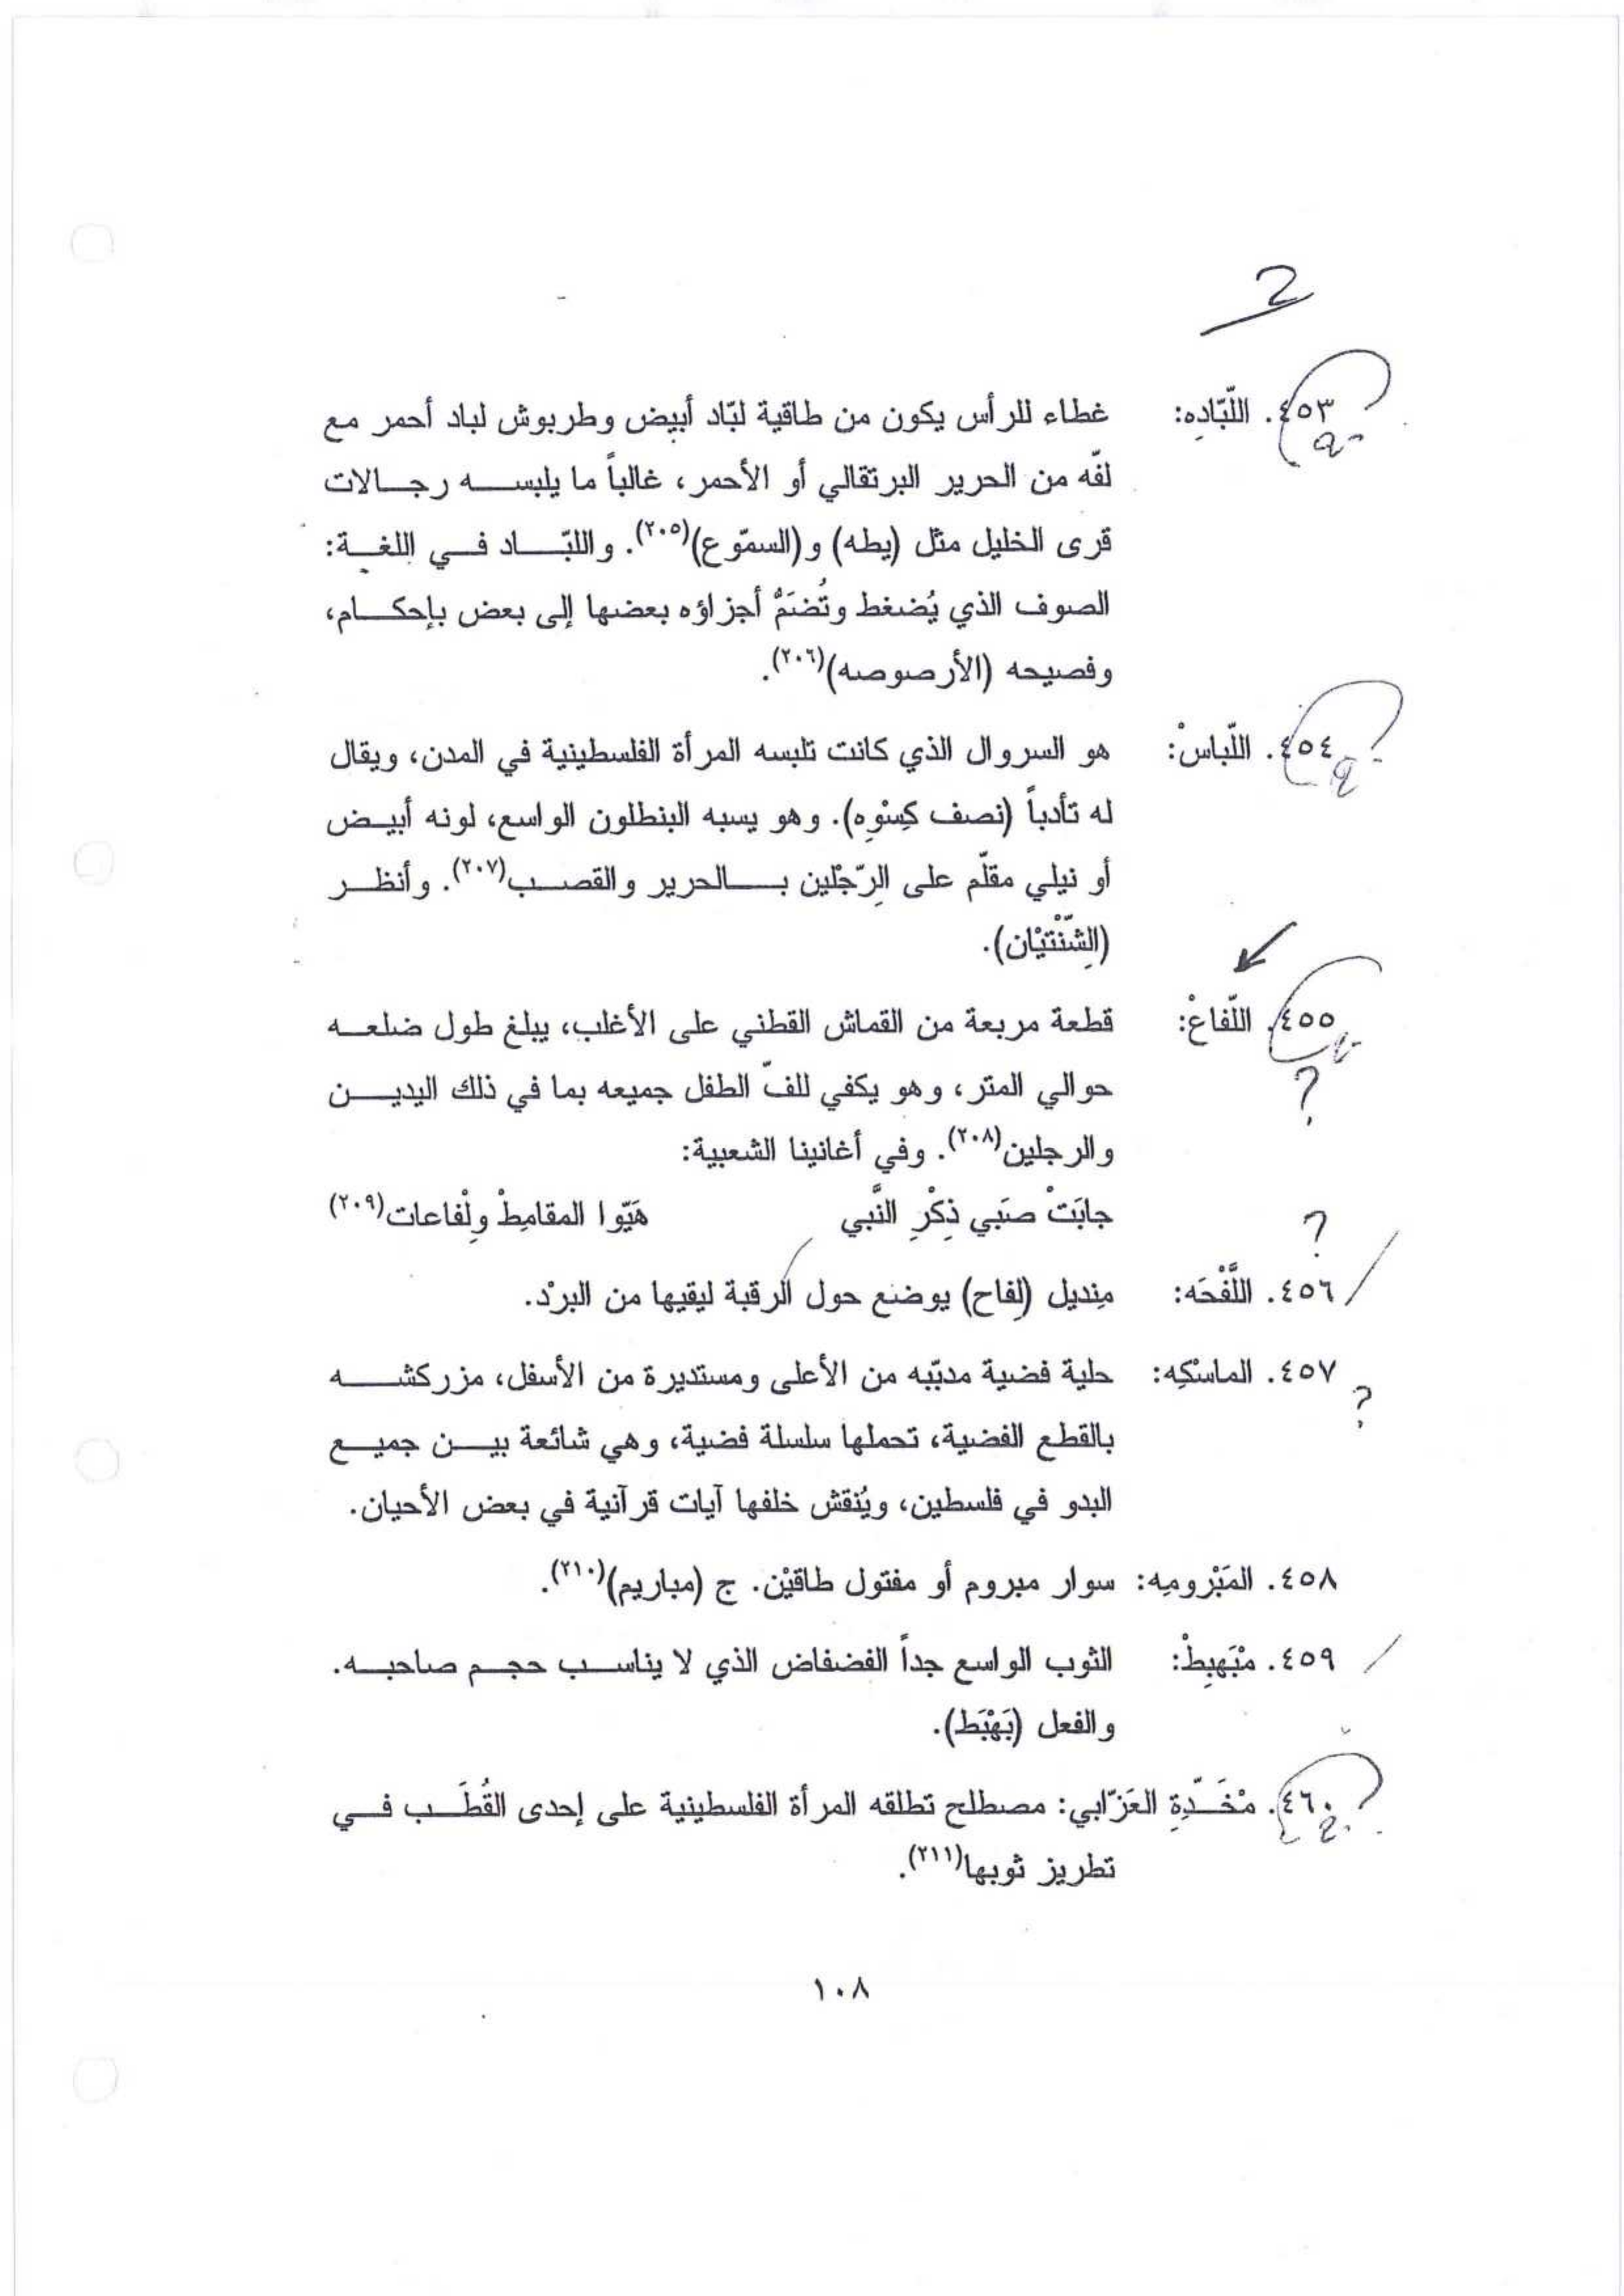 2
٤٥٣. اللّبّادِه: غطاء للرأس يكون من طاقية لبّاد أبيض وطربوش لباد أحمر مع
لفّه من الحرير البرتقالي أو الأحمر، غالباً ما يلبسه رجالات
قرى الخليل مثل (يطه) و(السمّوع)(٢٠٥). واللبّاد في اللغة:
الصوف الذي يُضغط وتُضَمُّ أجزاؤه بعضها إلى بعض بإحكام،
وفصيحه (الأرصوصه)(٢٠٦).
٤٥٤. اللّباسْ: هو السروال الذي كانت تلبسه المرأة الفلسطينية في المدن، ويقال
له تأدباً (نصف كِسْوِه). وهو يسبه البنطلون الواسع، لونه أبيض
أو نيلي مقلّم على الرِّجْلين بالحرير والقصب(٢٠٧). وأنظر
(الشِّنْتيْان).
٤٥٥. اللّفاعْ: قطعة مربعة من القماش القطني على الأغلب، يبلغ طول ضلعه
?
حوالي المتر، وهو يكفي للفّ الطفل جميعه بما في ذلك اليدين
والرجلين(٢٠٨). وفي أغانينا الشعبية:
جابَتْ صبَي ذِكْرِ النَّبي هَيّوا المقامِطْ ولِفْاعات(٢٠٩)
?
٤٥٦. اللَّفْحَه: مِنديل (لِفاح) يوضع حول الرقبة ليقيها من البرْد.
٤٥٧. الماسْكِه: حلية فضية مدبّبه من الأعلى ومستديرة من الأسفل، مزركشه
?
بالقطع الفضية، تحملها سلسلة فضية، وهي شائعة بين جميع
البدو في فلسطين، ويُنقش خلفها آيات قرآنية في بعض الأحيان.
٤٥٨. المَبْرومِه: سوار مبروم أو مفتول طاقيْن. ج (مباريم)(٢١٠).
٤٥٩. مْبَهبِطْ: الثوب الواسع جداً الفضفاض الذي لا يناسب حجم صاحبه.
والفعل (بَهْبَط).
٤٦٠. مْخَدّةِ العَزّابي: مصطلح تطلقه المرأة الفلسطينية على إحدى القُطَب في
تطريز ثوبها(٢١١).
١٠٨